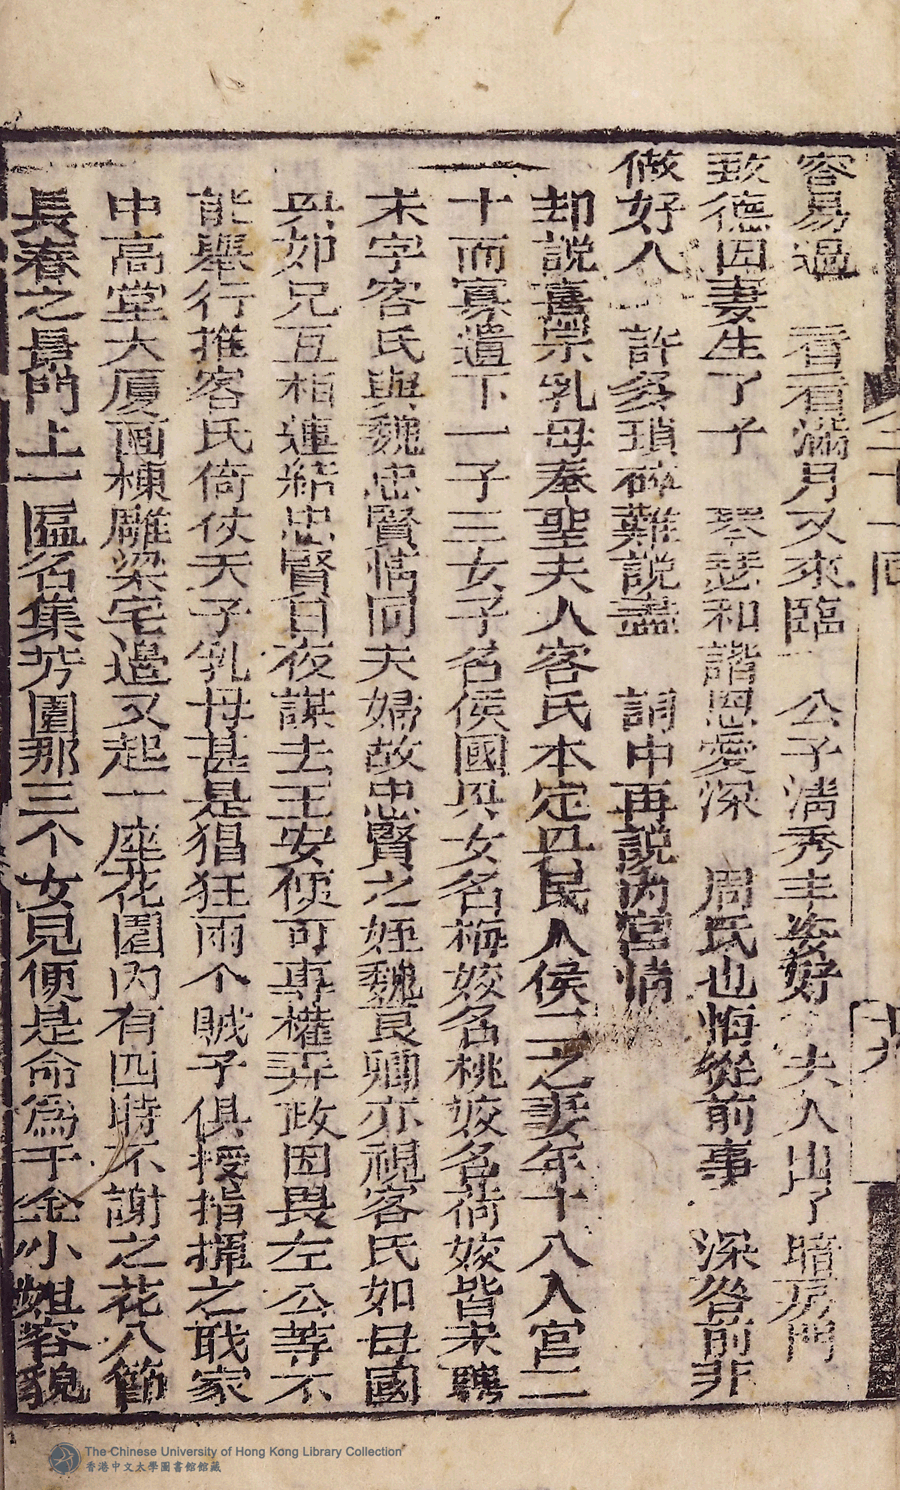 二十一回
十九
容易過　看看滿月又來臨　公子清秀丰姿好　夫人出了暗房門
致德因妻生了子　琴瑟和諧恩愛深　周氏也悔從前事　深咎前非
做好人　許多瑣碎難說盡　詞中再說內宮情
却說熹宗乳母奉聖夫人客氏本定興民人侯二之妻年十八入宮二
十而寡遺下一子三女子名侯國興女名梅姣名桃姣名荷姣皆未聘
未字客氏與魏忠賢情同夫婦故忠賢之姪魏良卿亦視客氏如母國
興如兄互相連結忠賢日夜謀去王安便可專權弄政因畏左公等不
能舉行推客氏倚仗天子乳母甚是猖狂兩个賊子俱授指揮之戢家
中高堂大厦画棟雕梁宅邊又起一座花園內有四時不謝之花八節
長春之景門上一匾名集芳園那三个女兒便是命為千金小姐容貌
The Chinese University of Hong Kong Library Collection
香港中文大學圖書館館藏